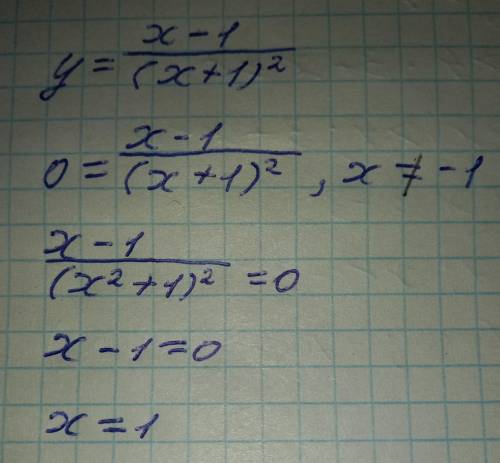 y = \frac{x-1}{(x+1)^2}
0 = \frac{x-1}{(x+1)^2}, x ≠ -1
\frac{x-1}{(x^2+1)^2} = 0
x - 1 = 0
x = 1